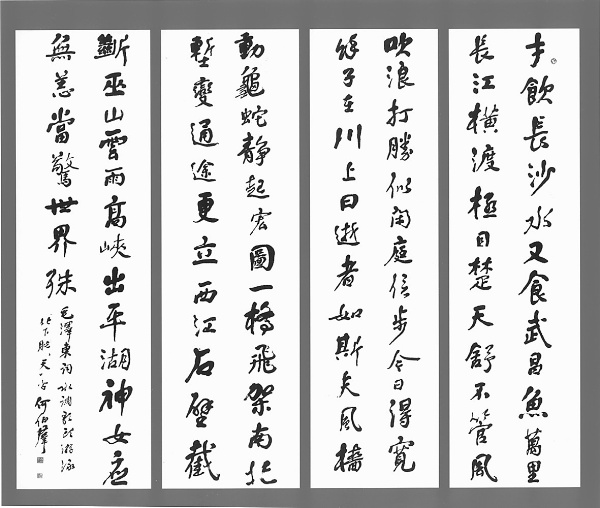 才飲長沙水又食武昌魚萬里
長江橫渡極目楚天舒不管風
吹浪打勝似閑庭信步今日得寬
餘子在川上曰逝者如斯夫風檣
動龜蛇靜起宏圖一橋飛架南北
塹變通途更立西江石壁截
斷巫山雲雨高峽出平湖神女應
無恙當驚世界殊
毛澤東詞水調歌頭游泳
何伯群